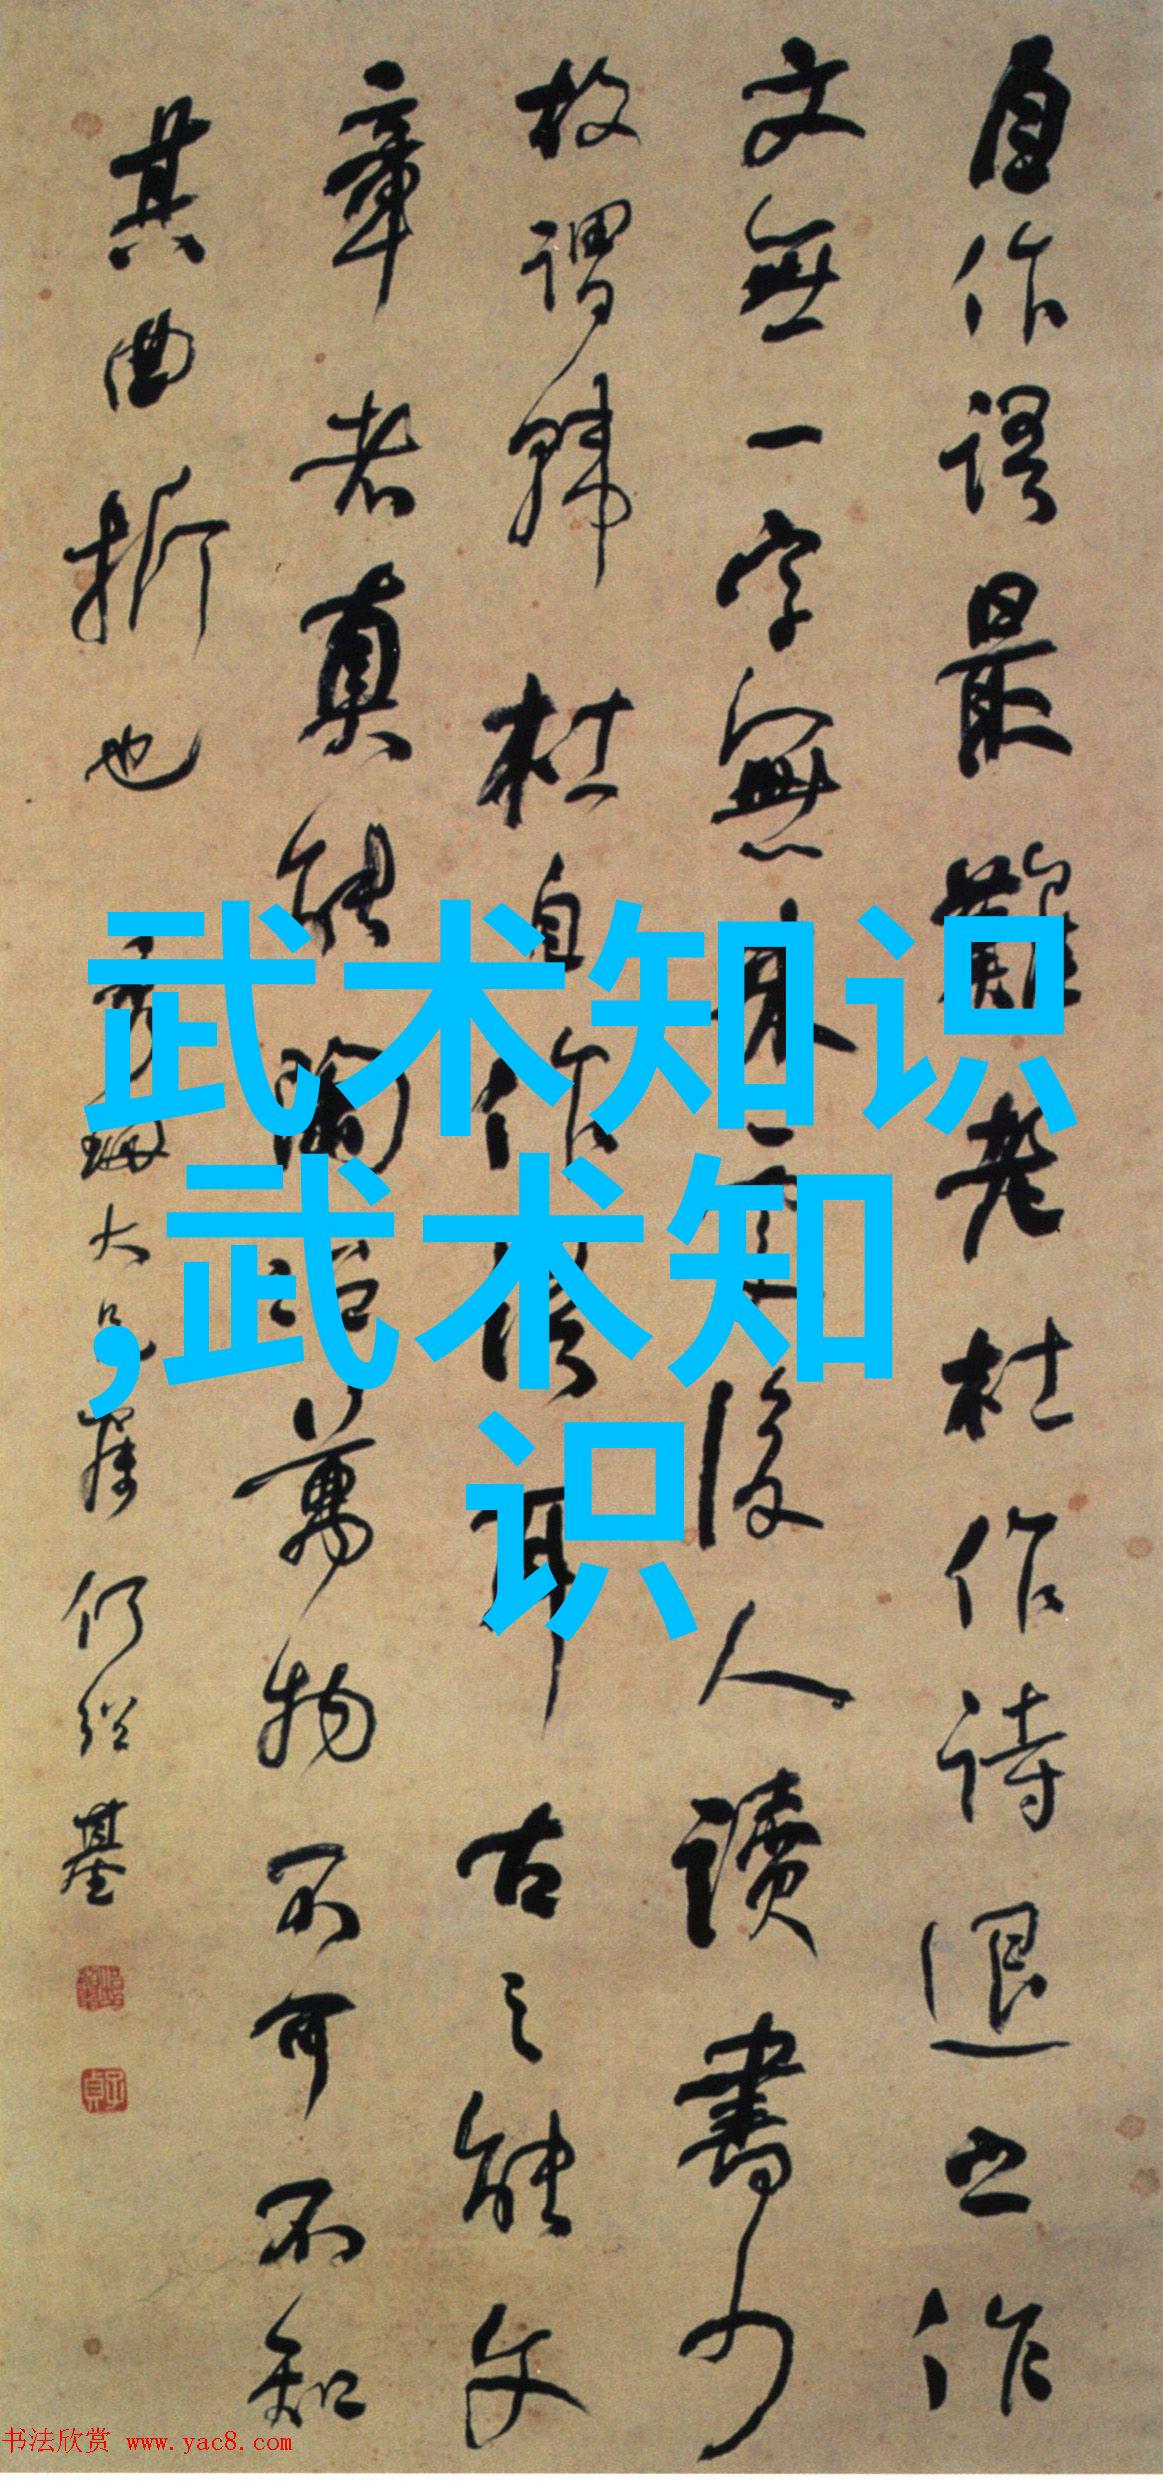 自作語最難老杜作詩退之作
文無一字無來處後人讀書少
故謂韓杜自作語耳古之能文
章者真能陶冶萬物不可不知
其曲折也
大兄屬何紹基
子貞
武术知识
,武术知
识
书法欣赏 www.yac8.com